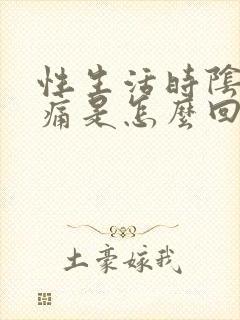 性生活時陰
痛是怎麼回
土豪嫁我